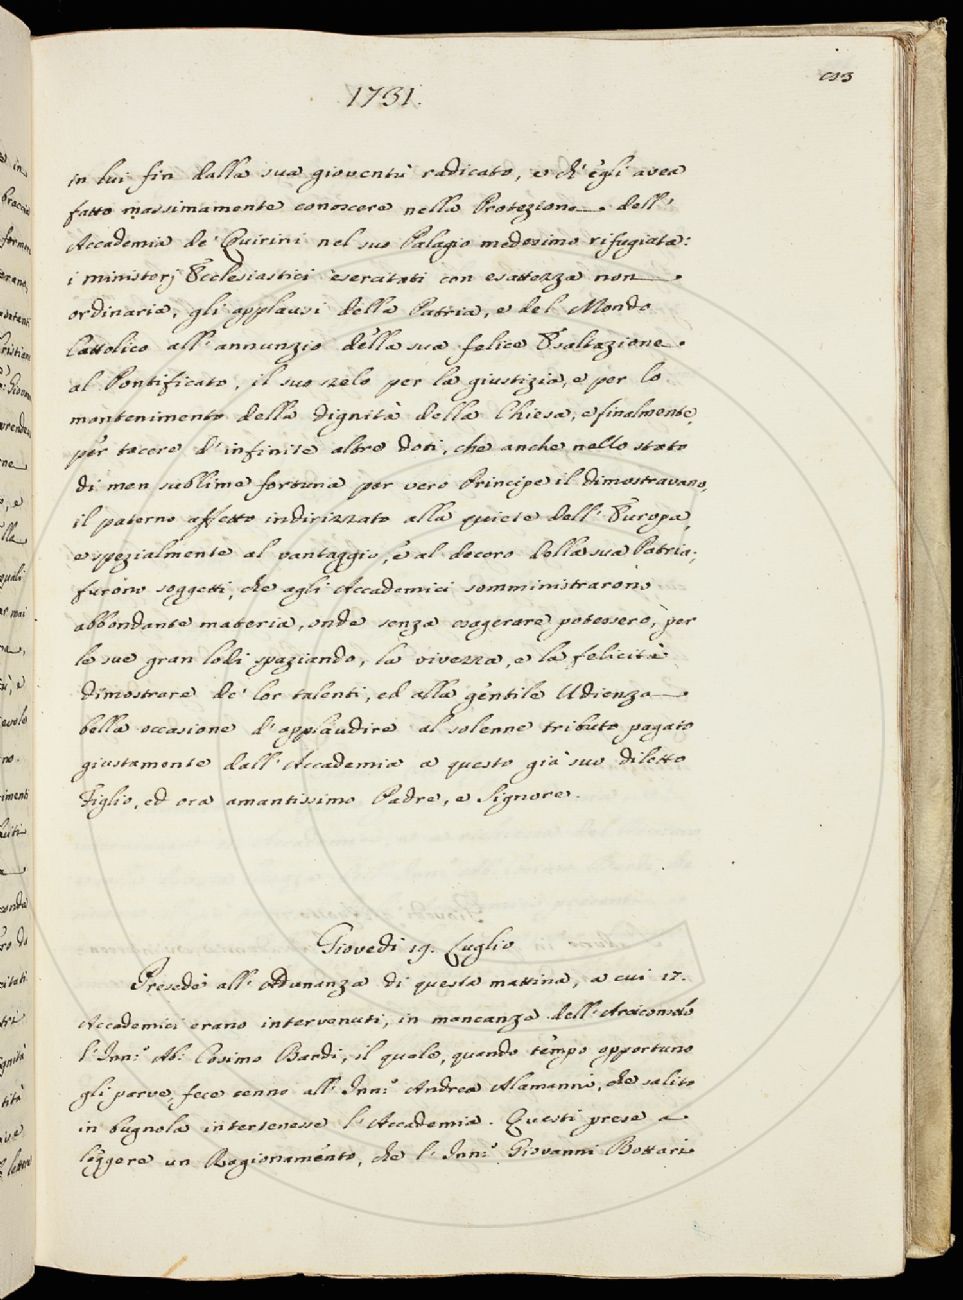 1731.
in lui fin dalla sua gioventù radicato, e ch'egli avea
fatto massimamente conoscere nella Protezione dell'
Accademia de' Quirini nel suo Palagio medesimo rifugiata:
i ministerj Ecclesiastici esercitati con esattezza non
ordinaria, gli applausi della Patria, e del Mondo
Cattolico all'annunzio della sua felice Esaltazione
al Pontificato, il suo zelo per la giustizia, e per lo
mantenimento della dignità della Chiesa, e finalmente,
per tacere d'infinite altre doti, che anche nello stato
di men sublime fortuna per vero Principe il dimostravano,
il paterno affetto indirizzato alla quiete dell'Europa,
e spezialmente al vantaggio, e al decoro della sua Patria,
furono soggetti, che agli Accademici somministrarono
abbondante materia, onde senza esagerare potessero, per
le sue gran lodi spaziando, la vivezza, e la felicità
dimostrare de' lor talenti, ed alla gentile Udienza
bella occasione d'applaudire al solenne tributo pagato
giustamente dall'Accademia a questo già suo diletto
Figlio, ed ora amantissimo Padre, e Signore.
Giovedì 19. Luglio
Presedè all'Adunanza di questa mattina, a cui 17.
Accademici erano intervenuti, in mancanza dell'Arciconsolo
l'Inn.º Ab.e Cosimo Bardi, il quale, quando tempo opportuno
gli parve, fece cenno all'Inn.º Andrea Alamanni, che salito
in bugnola intertenesse l'Accademia. Questi prese a
leggere un Ragionamento, che l'Inn.º Giovanni Bottari